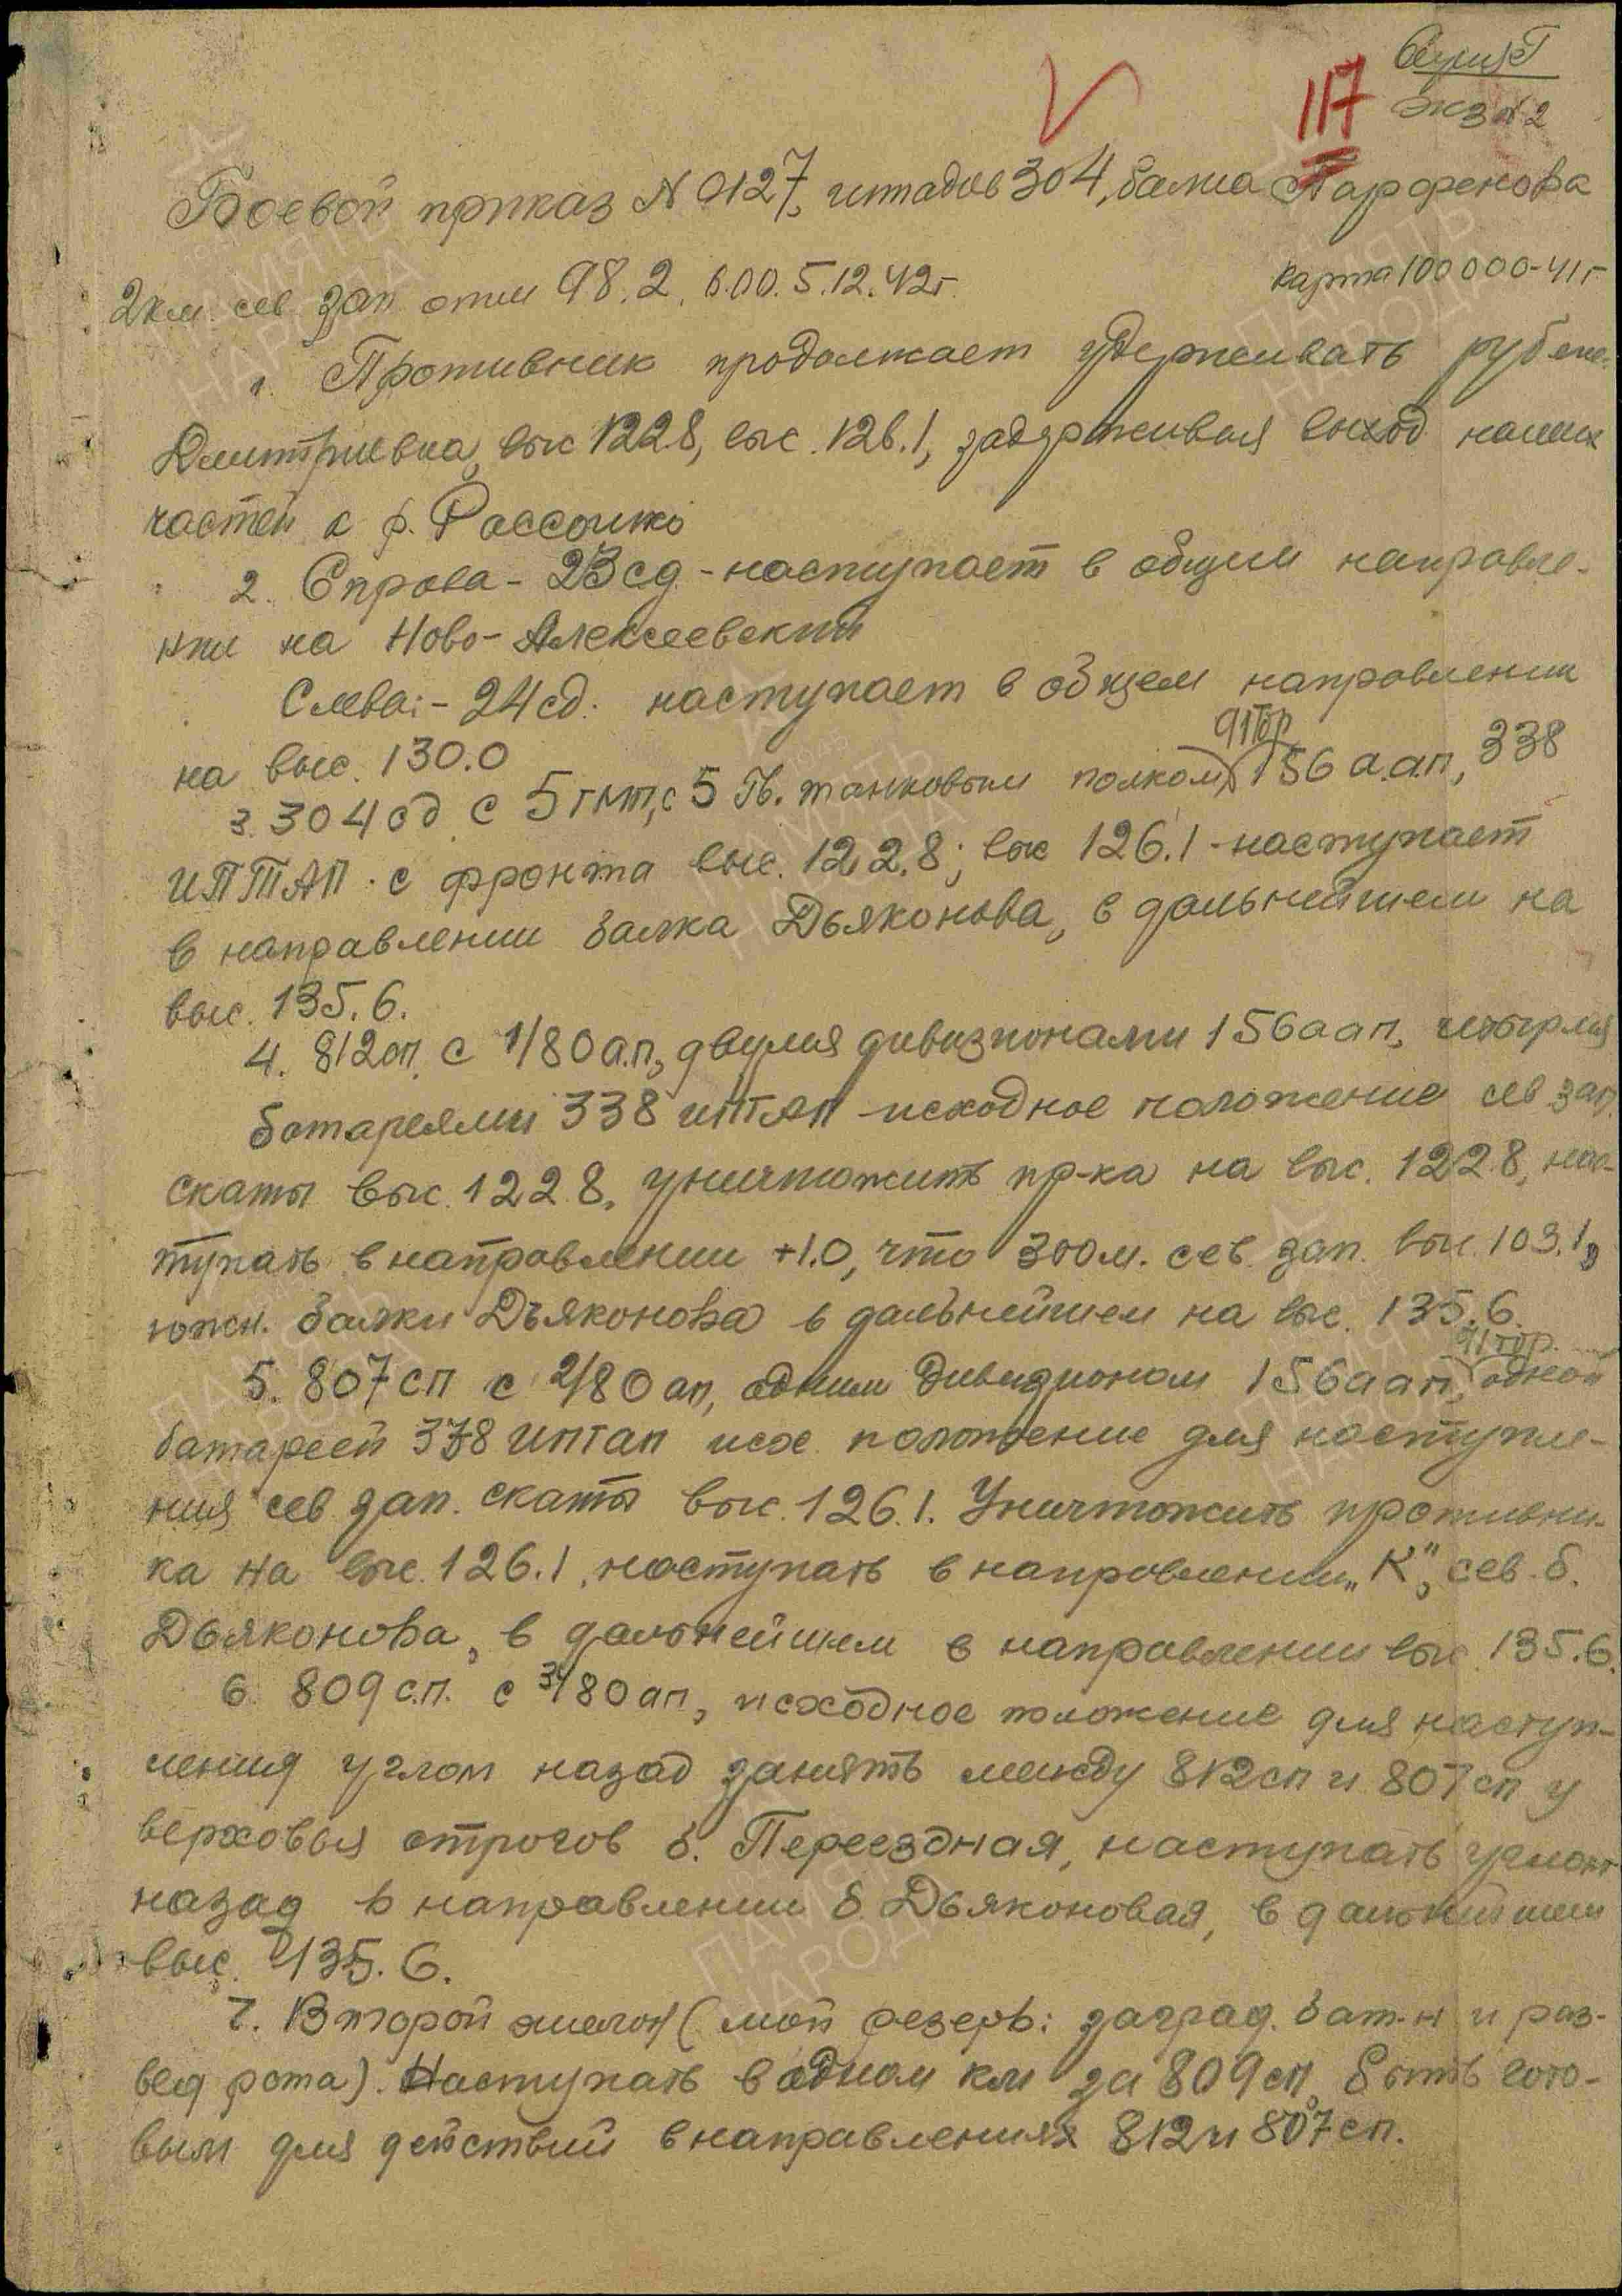 117
Экз №2
Боевой приказ №0127, штадив 304, балка Парфенова
2 км. сев зап отм 98.2. 6.00. 5.12.42г.
Карта 100000-41г
1. Противник продолжает удерживать рубеж
Дмитриевка, выс 122.8, выс. 126.1, задерживая выход наших
частей к р. Россошка
2. Справа - 23 сд - наступает в общем направле-
нии на Ново-Алексеевский
Слева:- 24 сд. наступает в общем направлении
на выс. 130.0
91 тор
3. 304 сд с 5 гмп, с 5 Гв. танковым полком, 156 а.а.п, 338
ИПТАП с фронта выс. 122.8; выс 126.1 - наступает
в направлении балка Дьяконова, в дальнейшем на
выс. 135.6.
4. 812 сп. с 1/80 а.п., двумя дивизионами 156 аап, четырмя
батареями 338 иптап - исходное положение сев зап.
скаты выс. 122.8, уничтожить пр-ка на выс. 122.8, нас-
тупать в направлении +1.0, что 300 м. сев. зап. выс. 103.1,
южн. балки Дьяконова в дальнейшем на выс. 135.6.
91 тор.
5. 807 сп с 2/80 ап, одним дивизионом 156 аап, одной
батареей 338 иптап исх. положение для наступле-
ния сев зап. скаты выс. 126.1. Уничтожить противни-
ка на выс. 126.1, наступать в направлении „К", сев. б.
Дьяконова, в дальнейшем в направлении выс. 135.6.
6. 809 с.п. с 3/80 ап, исходное положение для наступ-
ления углом назад занять между 812 сп и 807 сп у
верховья отрогов б. Переездная, наступать углом
назад в направлении б. Дьяконовая, в дальнейшем
выс. 135.6.
7. Второй эшелон (мой резерв: заград. бат-н и раз-
вед рота). Наступать в одном км за 809 сп, быть гото-
вым для действий в направлениях 812 и 807 сп.